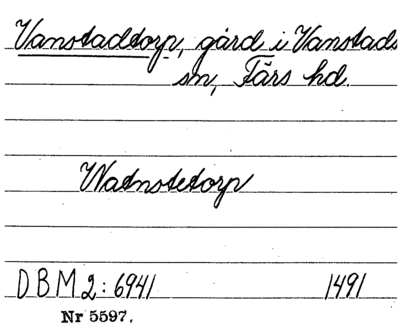 Vanstadtorp, gård i Vanstads
sn, Färs hd.
Watnstetorp
DBM 2: 6941 1491
Nr 5597.